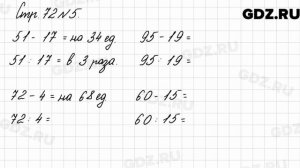 GDZ.RU
Стр. 72 №5.
51 - 17 = на 34 ед. 95 - 19 =
51 : 17 = в 3 раза. 95 : 19 =
72 - 4 = на 68 ед 60 - 15 =
72 : 4 = 60 : 15 =